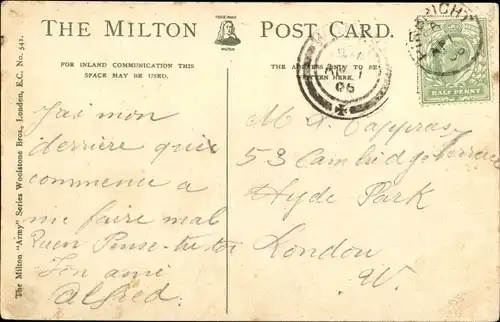 THE MILTON POST CARD.
TRADE MARK
MILTON
FOR INLAND COMMUNICATION THIS
SPACE MAY BE USED.
THE ADDRESS ONLY TO BE
WRITTEN HERE.
AP 1
06
HALF PENNY
The Milton "Army" Series Woolstone Bros., London, E.C. No. 542.
J'as mon
derrière qui
commence a
me faire mal
Quen Pense-tu toi
Ton ami
Alfred.
53 Cambridge Terrace
Hyde Park
London
W.